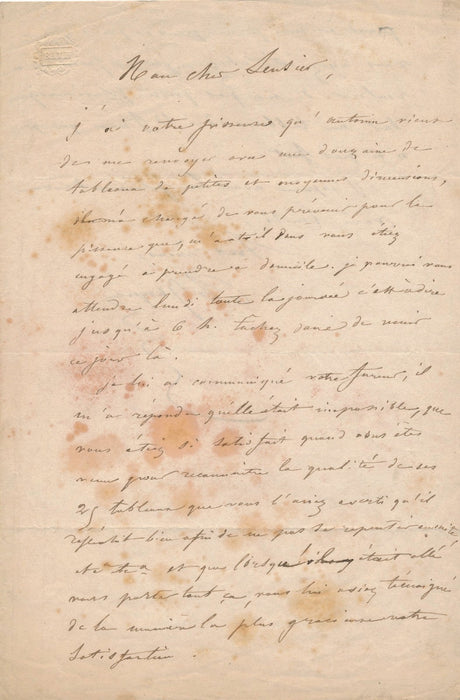 Mon cher Sensier,
J'ai votre Pissense qu'Antonin vient
de me renvoyer avec une douzaine de
tableaux de petites et moyennes dimensions,
il m'a chargé de vous prévenir pour la
pisseuse que vous étiez
engagé à prendre à domicile. je pourrai vous
attendre lundi toute la journée c'est à dire
jusqu'à 6 h. tâchez donc de venir
ce jour là.
je lui ai communiqué votre fureur, il
m'a répondu qu'elle était impossible, que
vous étiez si satisfait quand vous êtes
venu pour reconnaître la qualité de ses
25 tableaux que vous l'aviez averti qu'il
réfléchit bien afin de ne pas se repentir ensuite
et que lorsqu'il était allé
vous porter tout ça, vous lui aviez témoigné
de la manière la plus gracieuse votre
satisfaction.